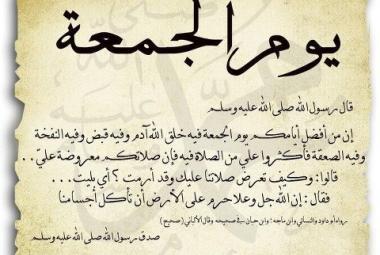 يوم الجمعة
قال رسول الله صلى الله عليه وسلم
إن من أفضل أيامكم يوم الجمعة فيه خلق الله آدم وفيه قبض وفيه النفخة
وفيه الصعقة فأكثروا علي من الصلاة فيه فإن صلاتكم معروضة علي ..
قالوا: وكيف تعرض صلاتنا عليك وقد أرمت ؟ أي بليت ...
فقال : إن الله جل وعلا حرم على الأرض أن تأكل أجسامنا
رواه أبو داود والنسائي وابن ماجه ؛ وابن حبان في صحيحه وقال الألباني (صحيح)
صدق رسول الله صلى الله عليه وسلم